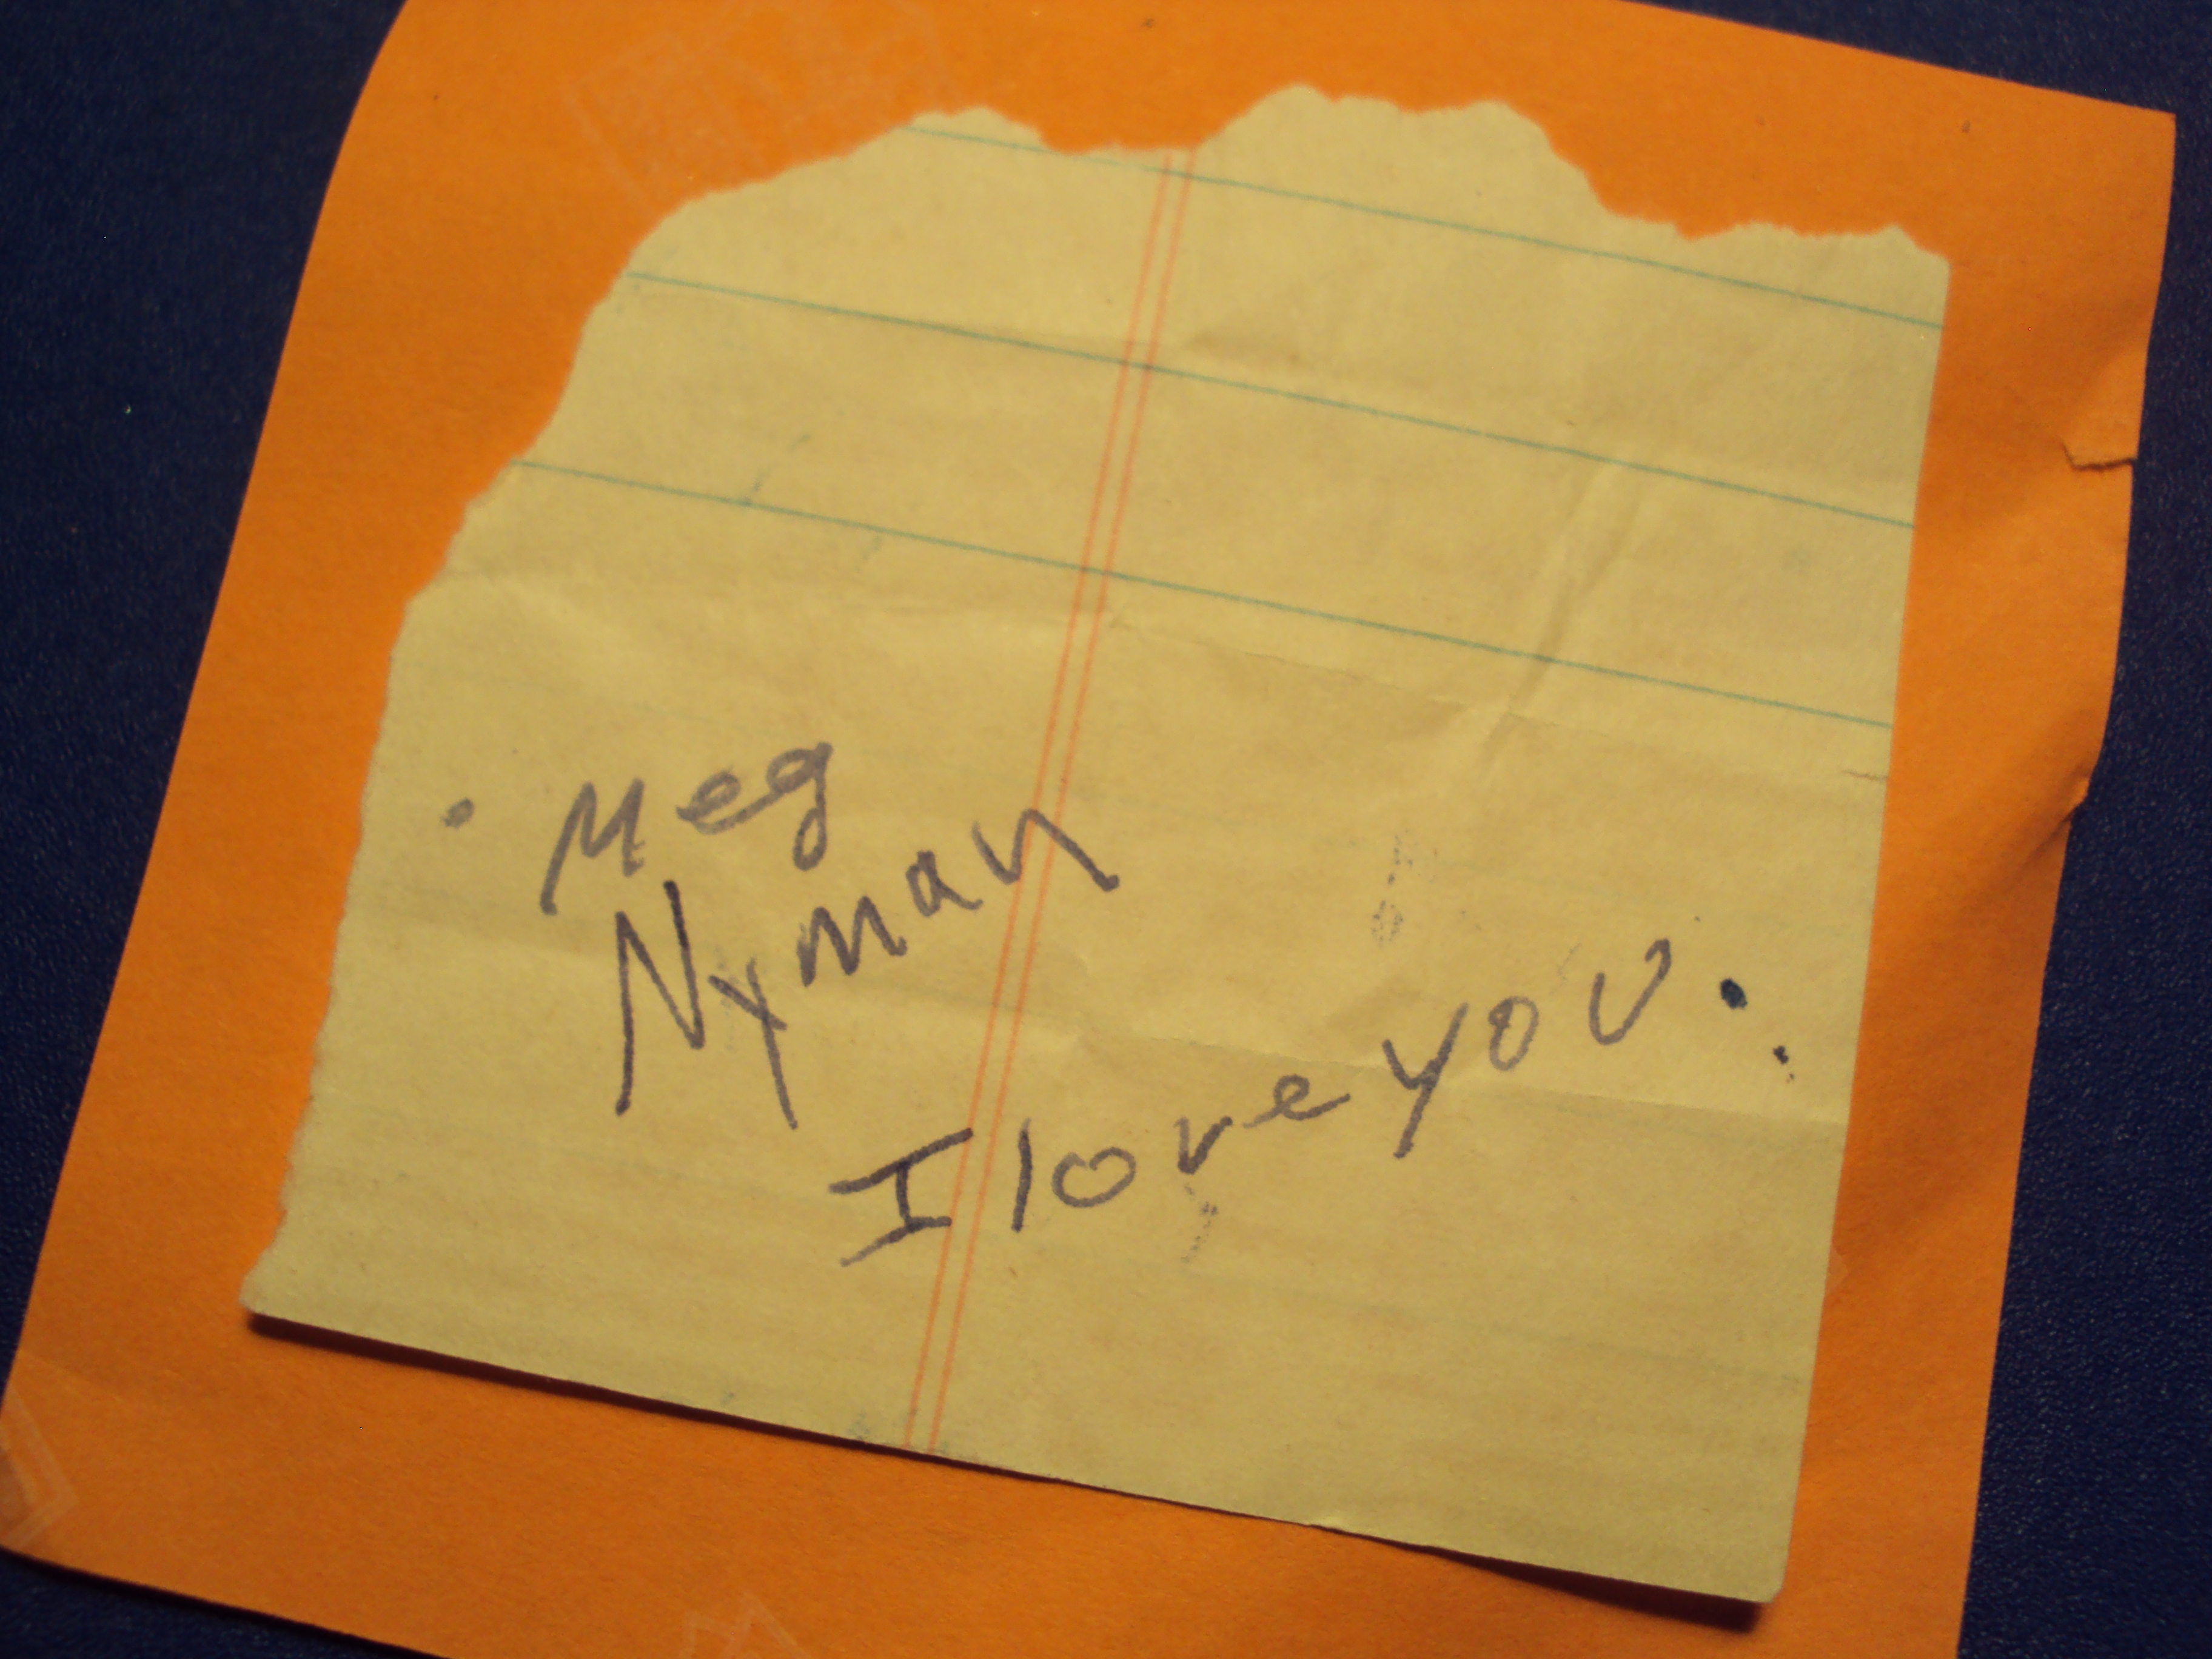 Meg
Nyman
I love you.